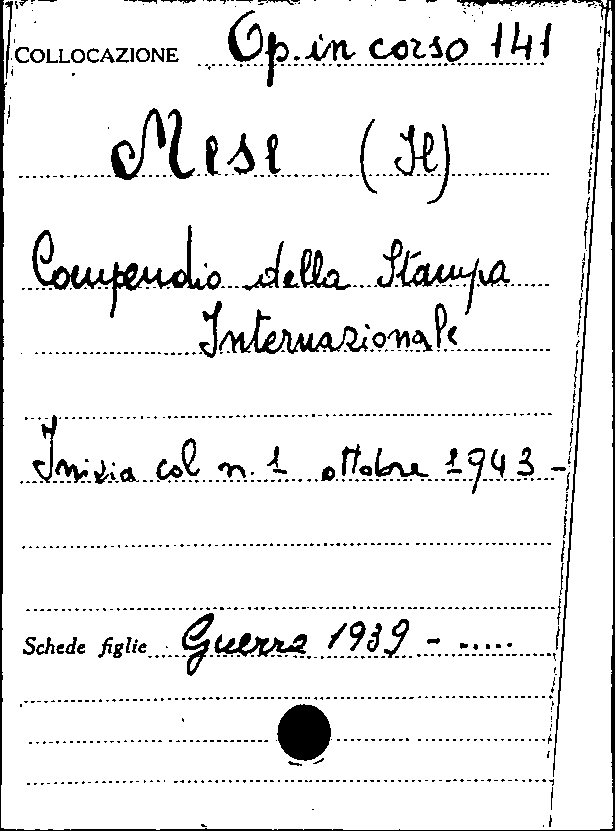 COLLOCAZIONE Op. in corso 141
Mese (Il)
Compendio della Stampa
Internazionale
Inizia col n. 1 ottobre 1943 -
Schede figlie Guerra 1939 - .....